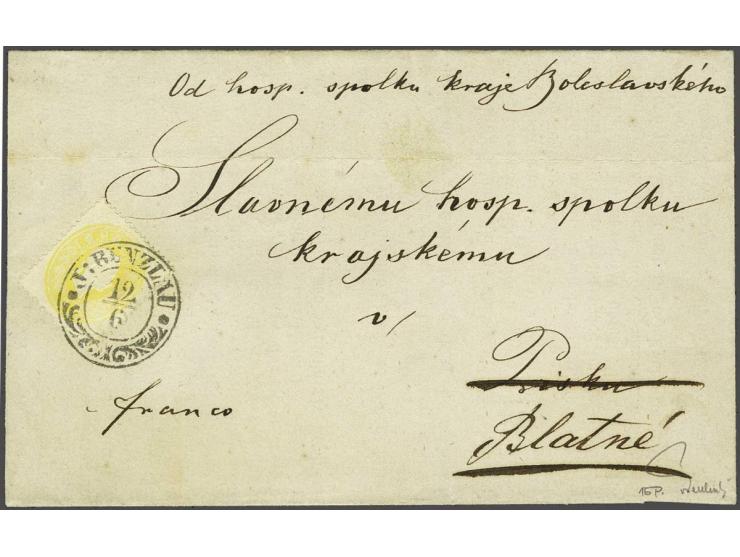 Od hosp. spolku kraje Boleslavského
Slavnému hosp. spolku
krajskému
v
J: BUNZLAU
12
6
Písku
franco
Blatné
15P.